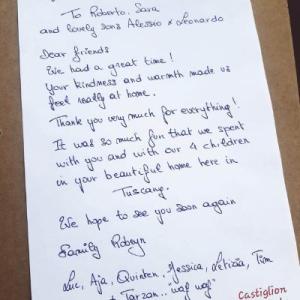 To Roberto, Sara
and lovely sons Alessio & Leonardo
Dear friends
We had a great time!
Your kindness and warmth made us
feel really at home.
Thank you very much for everything!
It was so much fun that we spent
with you and with our 4 children
in your beautiful home here in
Tuscany.
We hope to see you soon again
Family
Luc, Aja, Quinten, Jessica, Letizia, Tim
Tarzan... "waf waf"
Castiglion